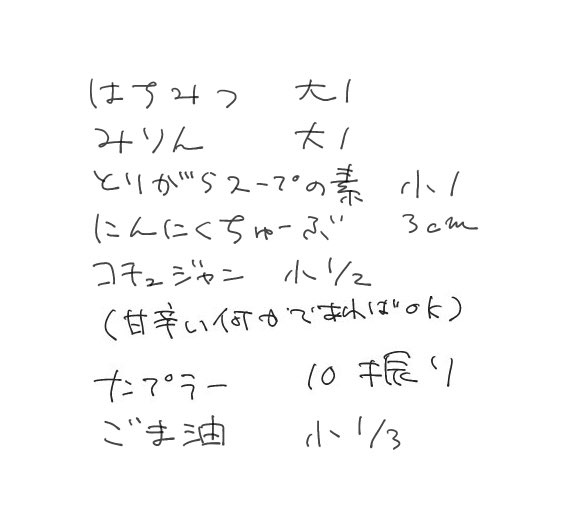 はちみつ 大1
みりん 大1
とりがらスープの素 小1
にんにくちゅーぶ 3cm
コチュジャン 小1/2
(甘辛い何かであればOK)
ナンプラー 10振り
ごま油 小1/3